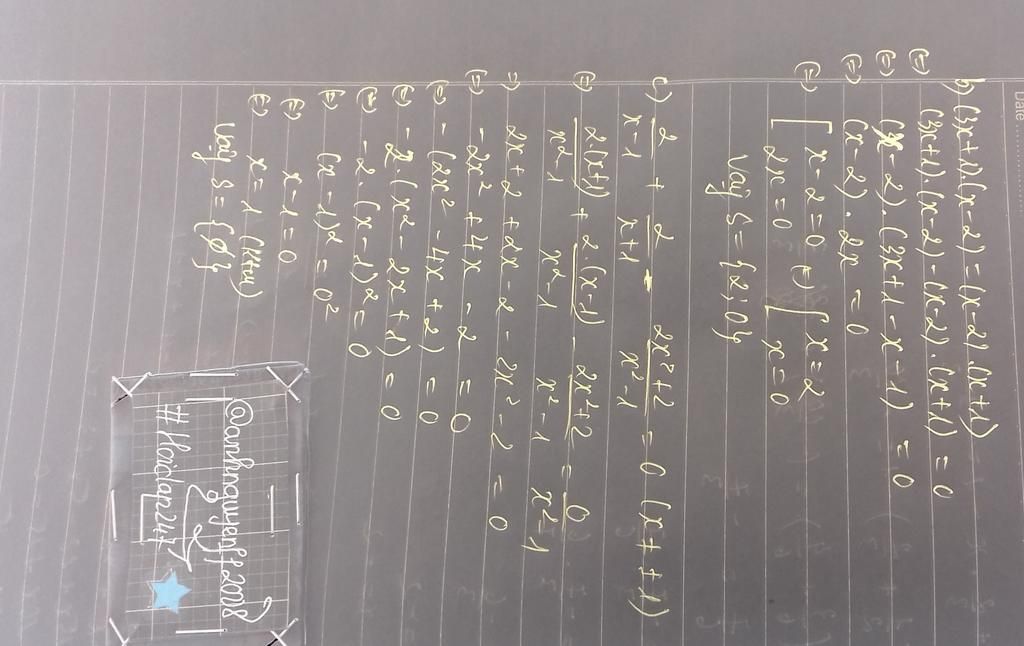 Date
b) (3x+1)(x-2) = (x-2).(x+1)
(=) (3x+1).(x-2)-(x-2).(x+1) = 0
(=) (x-2).(3x+1-x-1) = 0
(=) (x-2).2x = 0
(=) [ x-2=0 (=) [ x=2
2x=0 x=0
Vậy S={2;0}
c) 2/x-1 + 2/x+1 - 2x²+2/x²-1 = 0 (x ≠ ±1)
(=) 2.(x+1)/x²-1 + 2.(x-1)/x²-1 - 2x²+2/x²-1 = 0/x²-1
=) 2x+2+2x-2-2x²-2 = 0
(=) -2x²+4x-2 = 0
(=) -(2x²-4x+2) = 0
(=) -2.(x²-2x+1) = 0
(=) -2.(x-1)² = 0
(=) (x-1)² = 0²
(=) x-1=0
(=) x=1 (Ktm)
Vậy S={∅}
@anhnguyenff2008
#Hoidap247